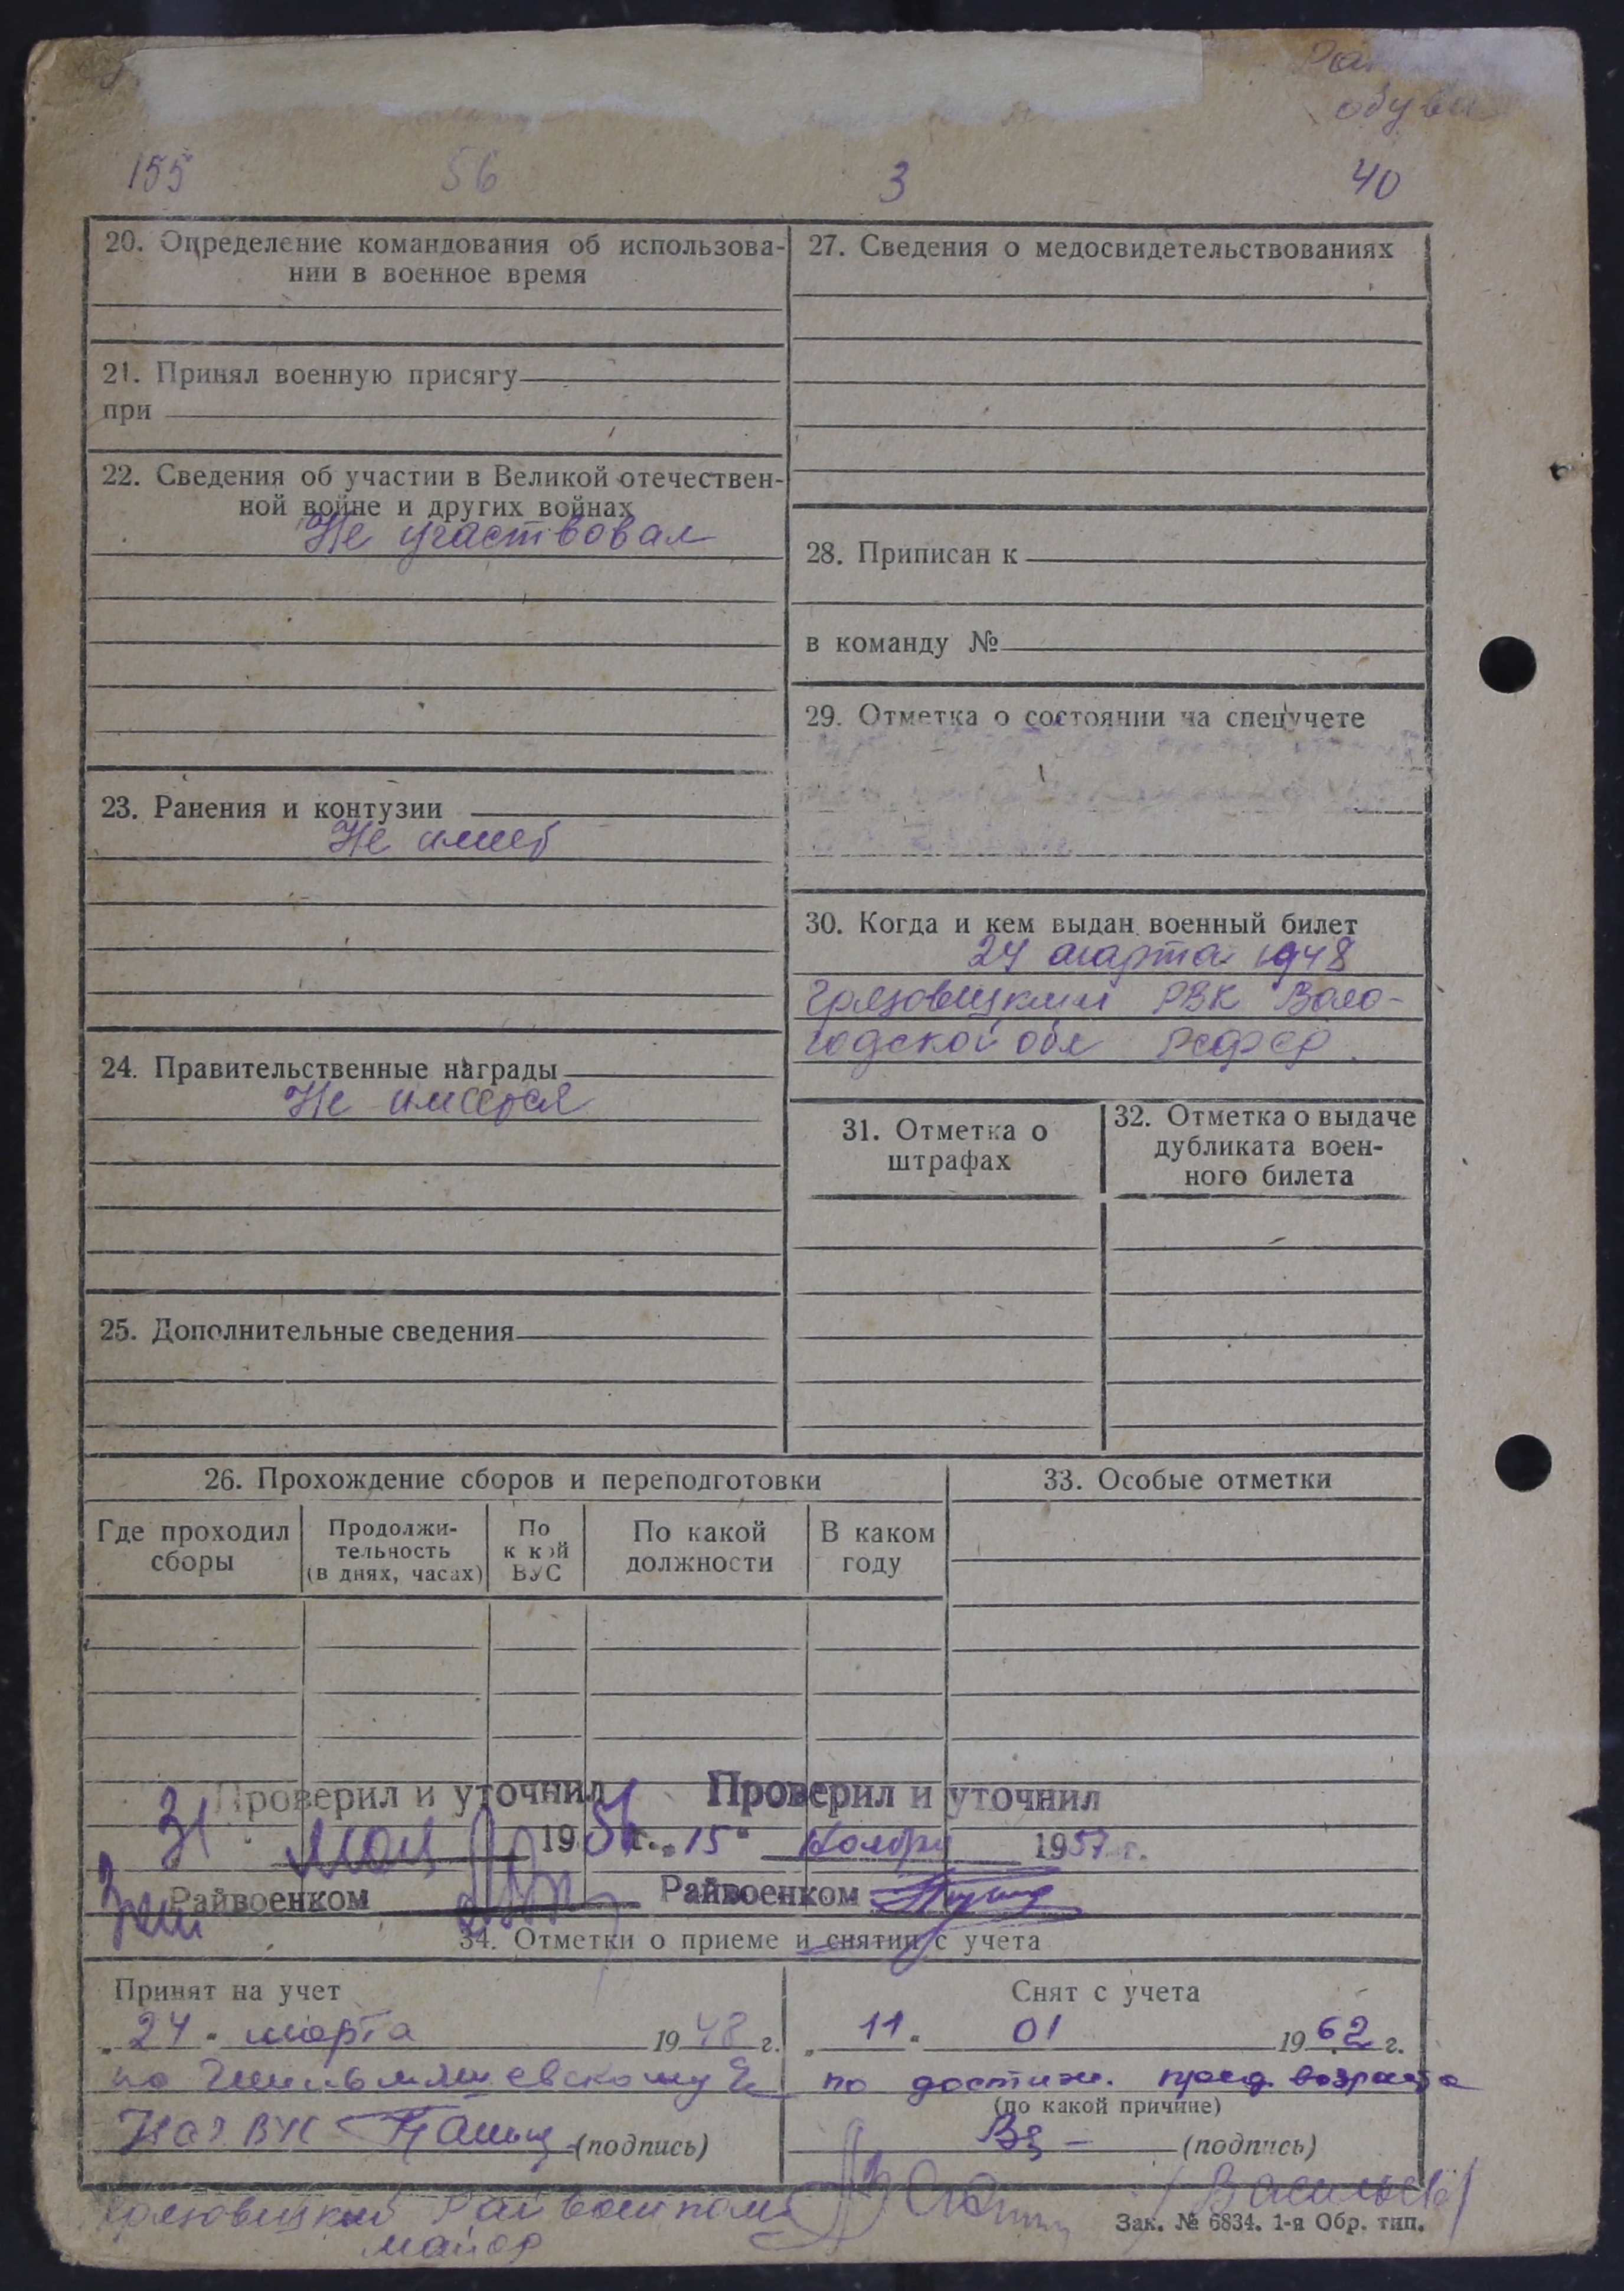 обуви
155 56 3 40
20. Определение командования об использова-
нии в военное время
21. Принял военную присягу
при
22. Сведения об участии в Великой отечествен-
ной войне и других войнах
Не участвовал
23. Ранения и контузии
Не имеет
24. Правительственные награды
Не имеется
25. Дополнительные сведения
27. Сведения о медосвидетельствованиях
28. Приписан к
в команду №
29. Отметка о состоянии на спецучете
30. Когда и кем выдан военный билет
24 марта 1948
Грязовецким РВК Воло-
годской обл РСФСР.
31. Отметка о
штрафах
32. Отметка о выдаче
дубликата воен-
ного билета
26. Прохождение сборов и переподготовки
Где проходил
сборы
Продолжи-
тельность
(в днях, часах)
По
к кой
ВУС
По какой
должности
В каком
году
33. Особые отметки
Проверил и уточнил
31 мая 1956 г.
Райвоенком
Проверил и уточнил
„15" Ноября 1957 г.
Райвоенком
34. Отметки о приеме и снятии с учета
Принят на учет
„24" марта 1948 г.
по
Нач ВУС (подпись)
Снят с учета
„11" 01 1962 г.
по достиж. пред. возраста
(по какой причине)
(подпись)
Грязовецкий Райвоенком
майор
/Васильев/
Зак. № 6834. 1-я Обр. тип.